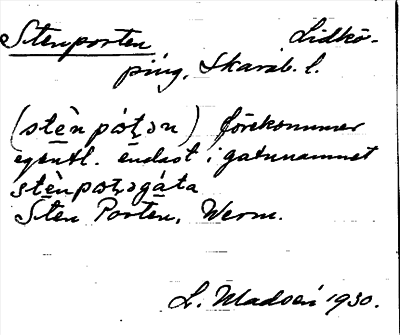 Stenporten Lidkö-
ping, Skarab. l.
(stènpóţən) förekommer
egentl. endast i gatunamnet
stènpoţəgáta
Sten Porten, Werm.
L. Madsén 1930.